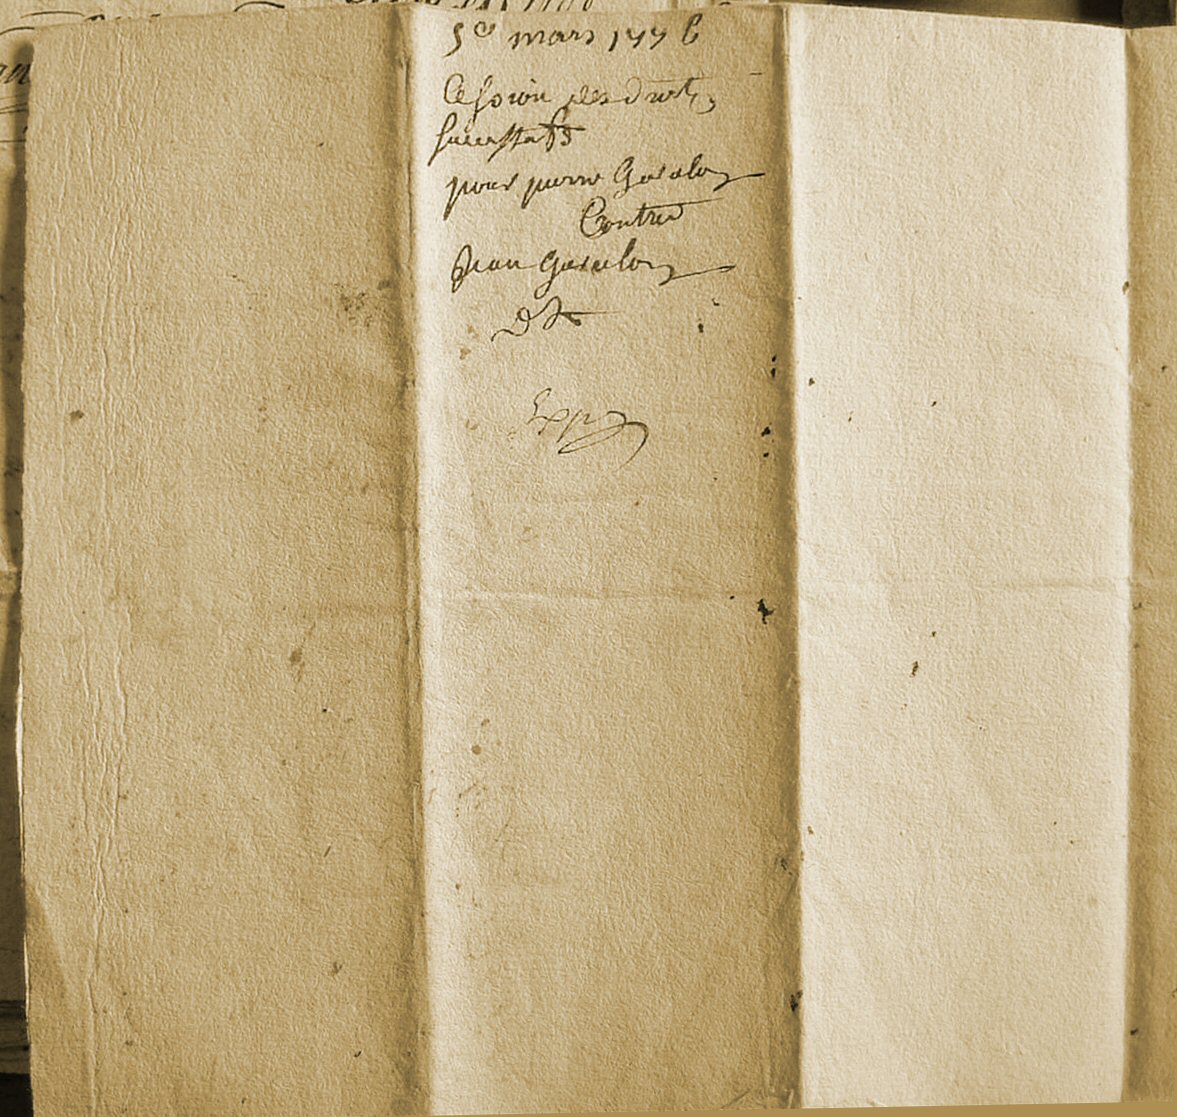 5e mars 1776
Cession des droits
successifs
pour pierre Gavalon
Contre
Jean Gavalon
Exp